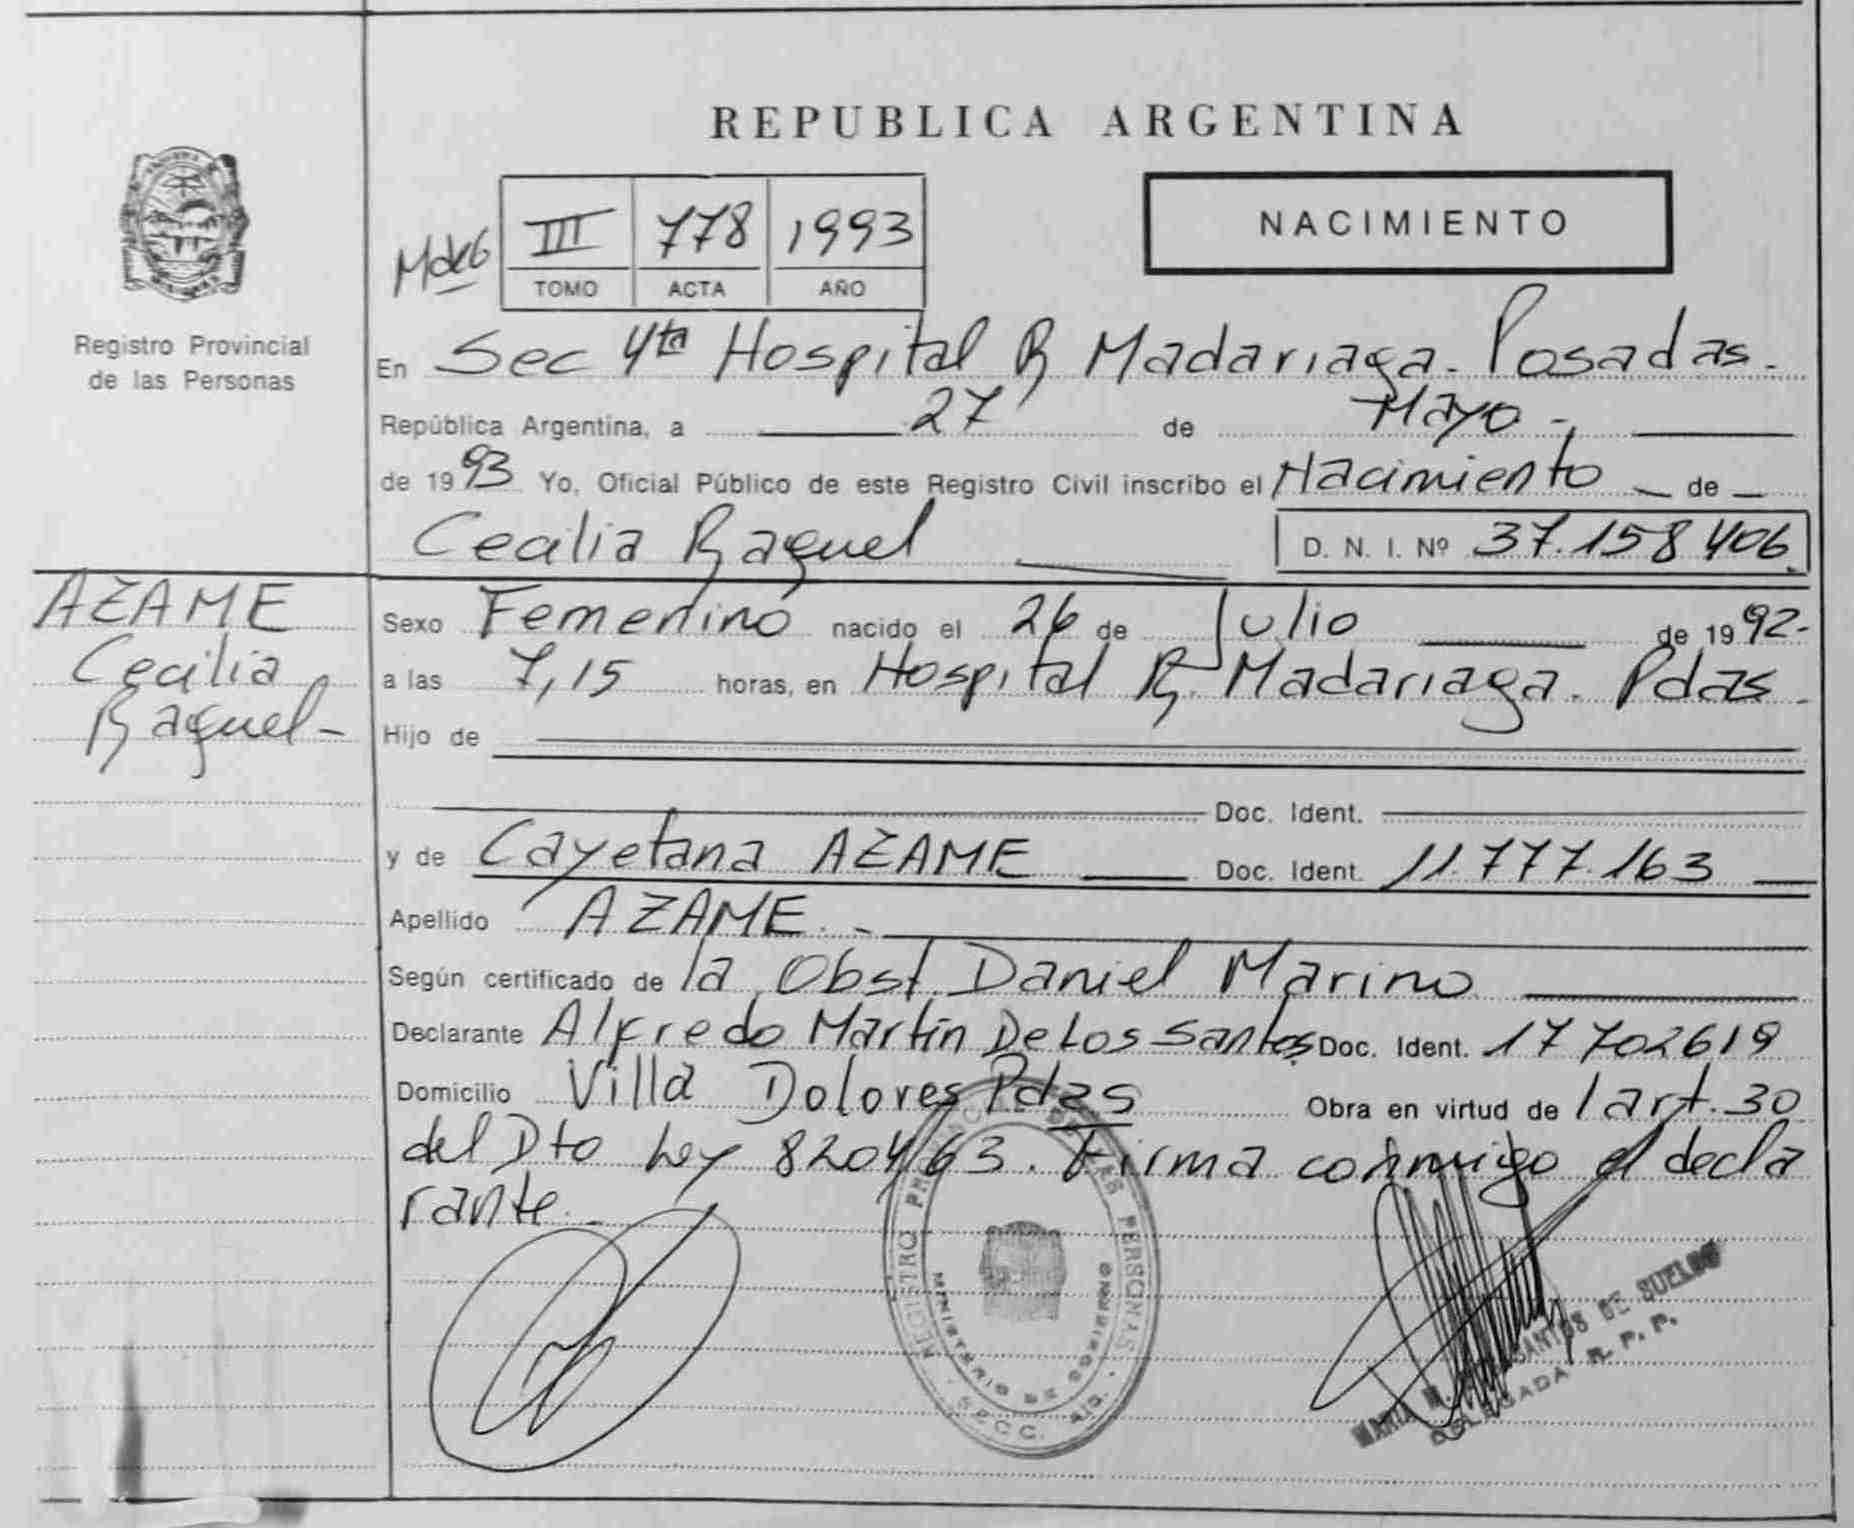 REPUBLICA ARGENTINA
NACIMIENTO
III 778 1993
TOMO ACTA AÑO
Registro Provincial
de las Personas
En Sec 4ta Hospital R Madariaga. Posadas.
República Argentina, a 27 de Mayo.
de 1993 Yo, Oficial Público de este Registro Civil inscribo el Nacimiento de
Cecilia Raquel D. N. I. Nº 37.158.406
AZAME
Cecilia
Raquel
Sexo Femenino nacido el 26 de Julio de 1992
a las 7,15 horas, en Hospital R. Madariaga. Pdas.
Hijo de
Doc. Ident.
y de Cayetana AZAME Doc. Ident. 11.777.163
Apellido AZAME.-
Según certificado de la Obst. Daniel Marino
Declarante Alfredo Martin De Los Santos Doc. Ident. 17702619
Domicilio Villa Dolores Pdas Obra en virtud de l art. 30
del Dto Ley 8204/63. Firma conmigo el decla
rante.
REGISTRO PROVINCIAL DE LAS PERSONAS
MINISTERIO DE GOBIERNO
MARIA SANTOS DE SUELDO
DELEGADA R. P. P.